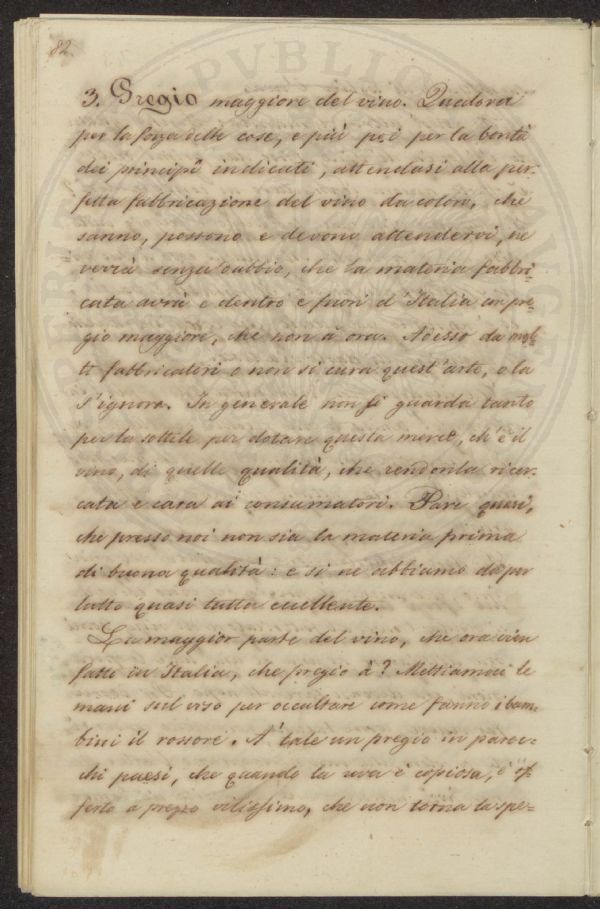 82.
3. Pregio maggiore del vino. Qualora
per la forza delle cose, e più poi per la bontà
dei principî indicati, attendasi alla per-
fetta fabbricazione del vino da coloro, che
sanno, possono e devono attendervi, ne
verrà senza dubbio, che la materia fabbri-
cata avrà e dentro e fuori d'Italia un pre-
gio maggiore, che non à ora. Adesso da mol-
ti fabbricatori o non si cura quest'arte, o la
s'ignora. In generale non si guarda tanto
per la sottile per dotare questa merce, ch'è il
vino, di quelle qualità, che rendonla ricer-
cata e cara ai consumatori. Pare quasi,
che presso noi non sia la materia prima
di buona qualità: e si ne abbiamo da per
tutto quasi tutta eccellente.
La maggior parte del vino, che ora vien
fatto in Italia, che pregio à? Mettiamoci le
mani sul viso per occultare come fanno i bam-
bini il rossore. A' tale un pregio in parec-
chi paesi, che quando la uva è copiosa, è of-
ferto a prezzo vilissimo, che non torna la spe-